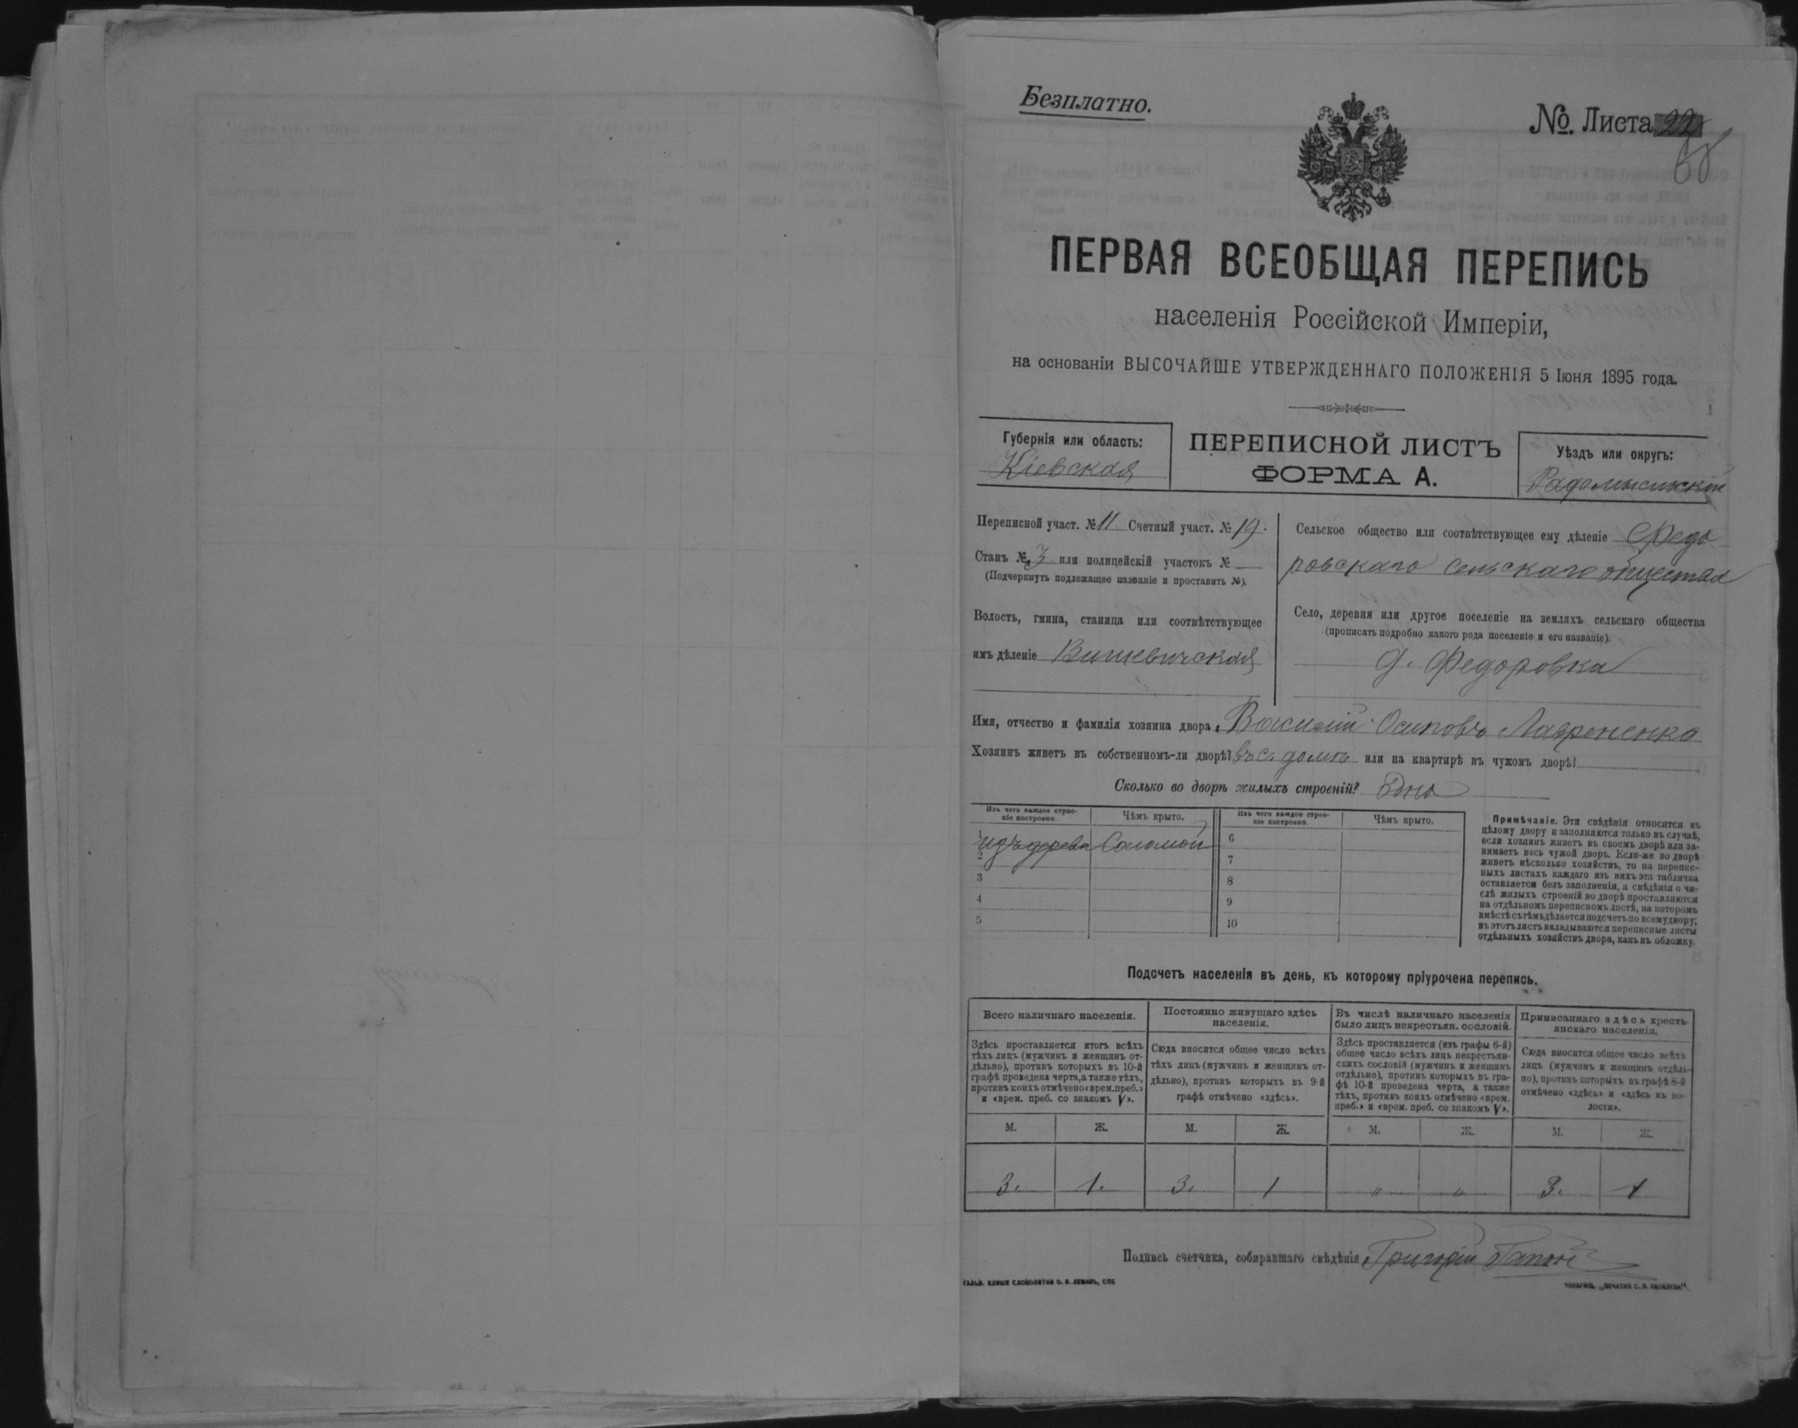 Безплатно.
№. Листа 22
ПЕРВАЯ ВСЕОБЩАЯ ПЕРЕПИСЬ
населенія Россійской Имперіи,
на основаніи ВЫСОЧАЙШЕ УТВЕРЖДЕННАГО ПОЛОЖЕНІЯ 5 Іюня 1895 года.
Губернія или область:
Кіевская
ПЕРЕПИСНОЙ ЛИСТЪ
ФОРМА А.
Уѣздъ или округъ:
Радомысльскій
Переписной участ. № 11 Счетный участ. № 19.
Станъ № 3 или полицейскій участокъ №
(Подчеркнуть подлежащее названіе и проставить №).
Волость, гмина, станица или соотвѣтствующее
имъ дѣленіе Вишевичская
Сельское общество или соотвѣтствующее ему дѣленіе Федо
ровскаго сельскаго общества
Село, деревня или другое поселеніе на земляхъ сельскаго общества
(прописать подробно какого рода поселеніе и его названіе).
д. Федоровка
Имя, отчество и фамилія хозяина двора, Василій Осиповъ Лавриненко
Хозяинъ живетъ въ собственномъ-ли дворѣ? въ с. домѣ или на квартирѣ въ чужомъ дворѣ?
Сколько во дворѣ жилыхъ строеній? Одно
Изъ чего каждое строе-
ніе построено.
Чѣмъ крыто.
Изъ чего каждое строе-
ніе построено.
Чѣмъ крыто.
1 изъ дерева Соломой
2
3
4
5
6
7
8
9
10
Примѣчаніе. Эти свѣдѣнія относятся къ
цѣлому двору и заполняются только въ случаѣ,
если хозяинъ живетъ въ своемъ дворѣ или за-
нимаетъ весь чужой дворъ. Если-же во дворѣ
живетъ нѣсколько хозяйствъ, то на перепис-
ныхъ листахъ каждаго изъ нихъ эта табличка
оставляется безъ заполненія, а свѣдѣнія о чи-
слѣ жилыхъ строеній во дворѣ проставляются
на отдѣльномъ переписномъ листѣ, на которомъ
вмѣстѣ съ тѣмъ дѣлается подсчетъ по всему двору;
въ этотъ листъ вкладываются переписные листы
отдѣльныхъ хозяйствъ двора, какъ въ обложку.
Подсчетъ населенія въ день, къ которому пріурочена перепись.
Всего наличнаго населенія.
Здѣсь проставляется итогъ всѣхъ
тѣхъ лицъ (мужчинъ и женщинъ от-
дѣльно), противъ которыхъ въ 10-й
графѣ проведена черта, а также тѣхъ,
противъ коихъ отмѣчено «врем. преб.»
и «врем. преб. со знакомъ V».
Постоянно живущаго здѣсь
населенія.
Сюда вносится общее число всѣхъ
тѣхъ лицъ (мужчинъ и женщинъ от-
дѣльно), противъ которыхъ въ 9-й
графѣ отмѣчено «здѣсь».
Въ числѣ наличнаго населенія
было лицъ некрестьян. сословій.
Здѣсь проставляется (изъ графы 6-й)
общее число всѣхъ лицъ некрестьян-
скихъ сословій (мужчинъ и женщинъ
отдѣльно), противъ которыхъ въ гра-
фѣ 10-й проведена черта, а также
тѣхъ, противъ коихъ отмѣчено «врем.
преб.» и «врем. преб. со знакомъ V».
Приписаннаго здѣсь кресть-
янскаго населенія.
Сюда вносится общее число всѣхъ
лицъ (мужчинъ и женщинъ отдѣль-
но), противъ которыхъ въ графѣ 8-й
отмѣчено «здѣсь» и «здѣсь въ во-
лости».
М. Ж. М. Ж. М. Ж. М. Ж.
3. 1. 3. 1 „ „ 3. 1
Подпись счетчика, собиравшаго свѣдѣнія Григорій
ГАЛЬВ. КЛИШЕ СЛОВОЛИТНИ О. И. ЛЕМАНЪ, СПБ